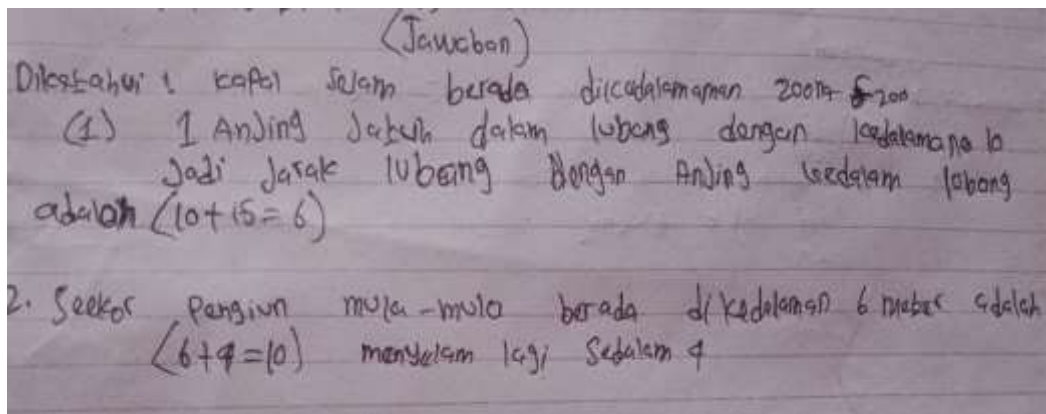 (Jawaban)
Diketahui : kapal selam berada dikedalamaman 200m 200
(1) 1 Anjing Jatuh dalam lubang dengan kedalamana 10
Jadi Jarak lubang Dengan Anjing sedalam lobang
adalah (10+15=6)
2. Seekor Pengiun mula-mula berada di kedalaman 6 meter adalah
(6+4=10) menyelam lagi Sedalam 4